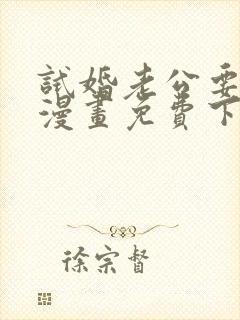 試婚老公要
漫畫免費下
徐宗督